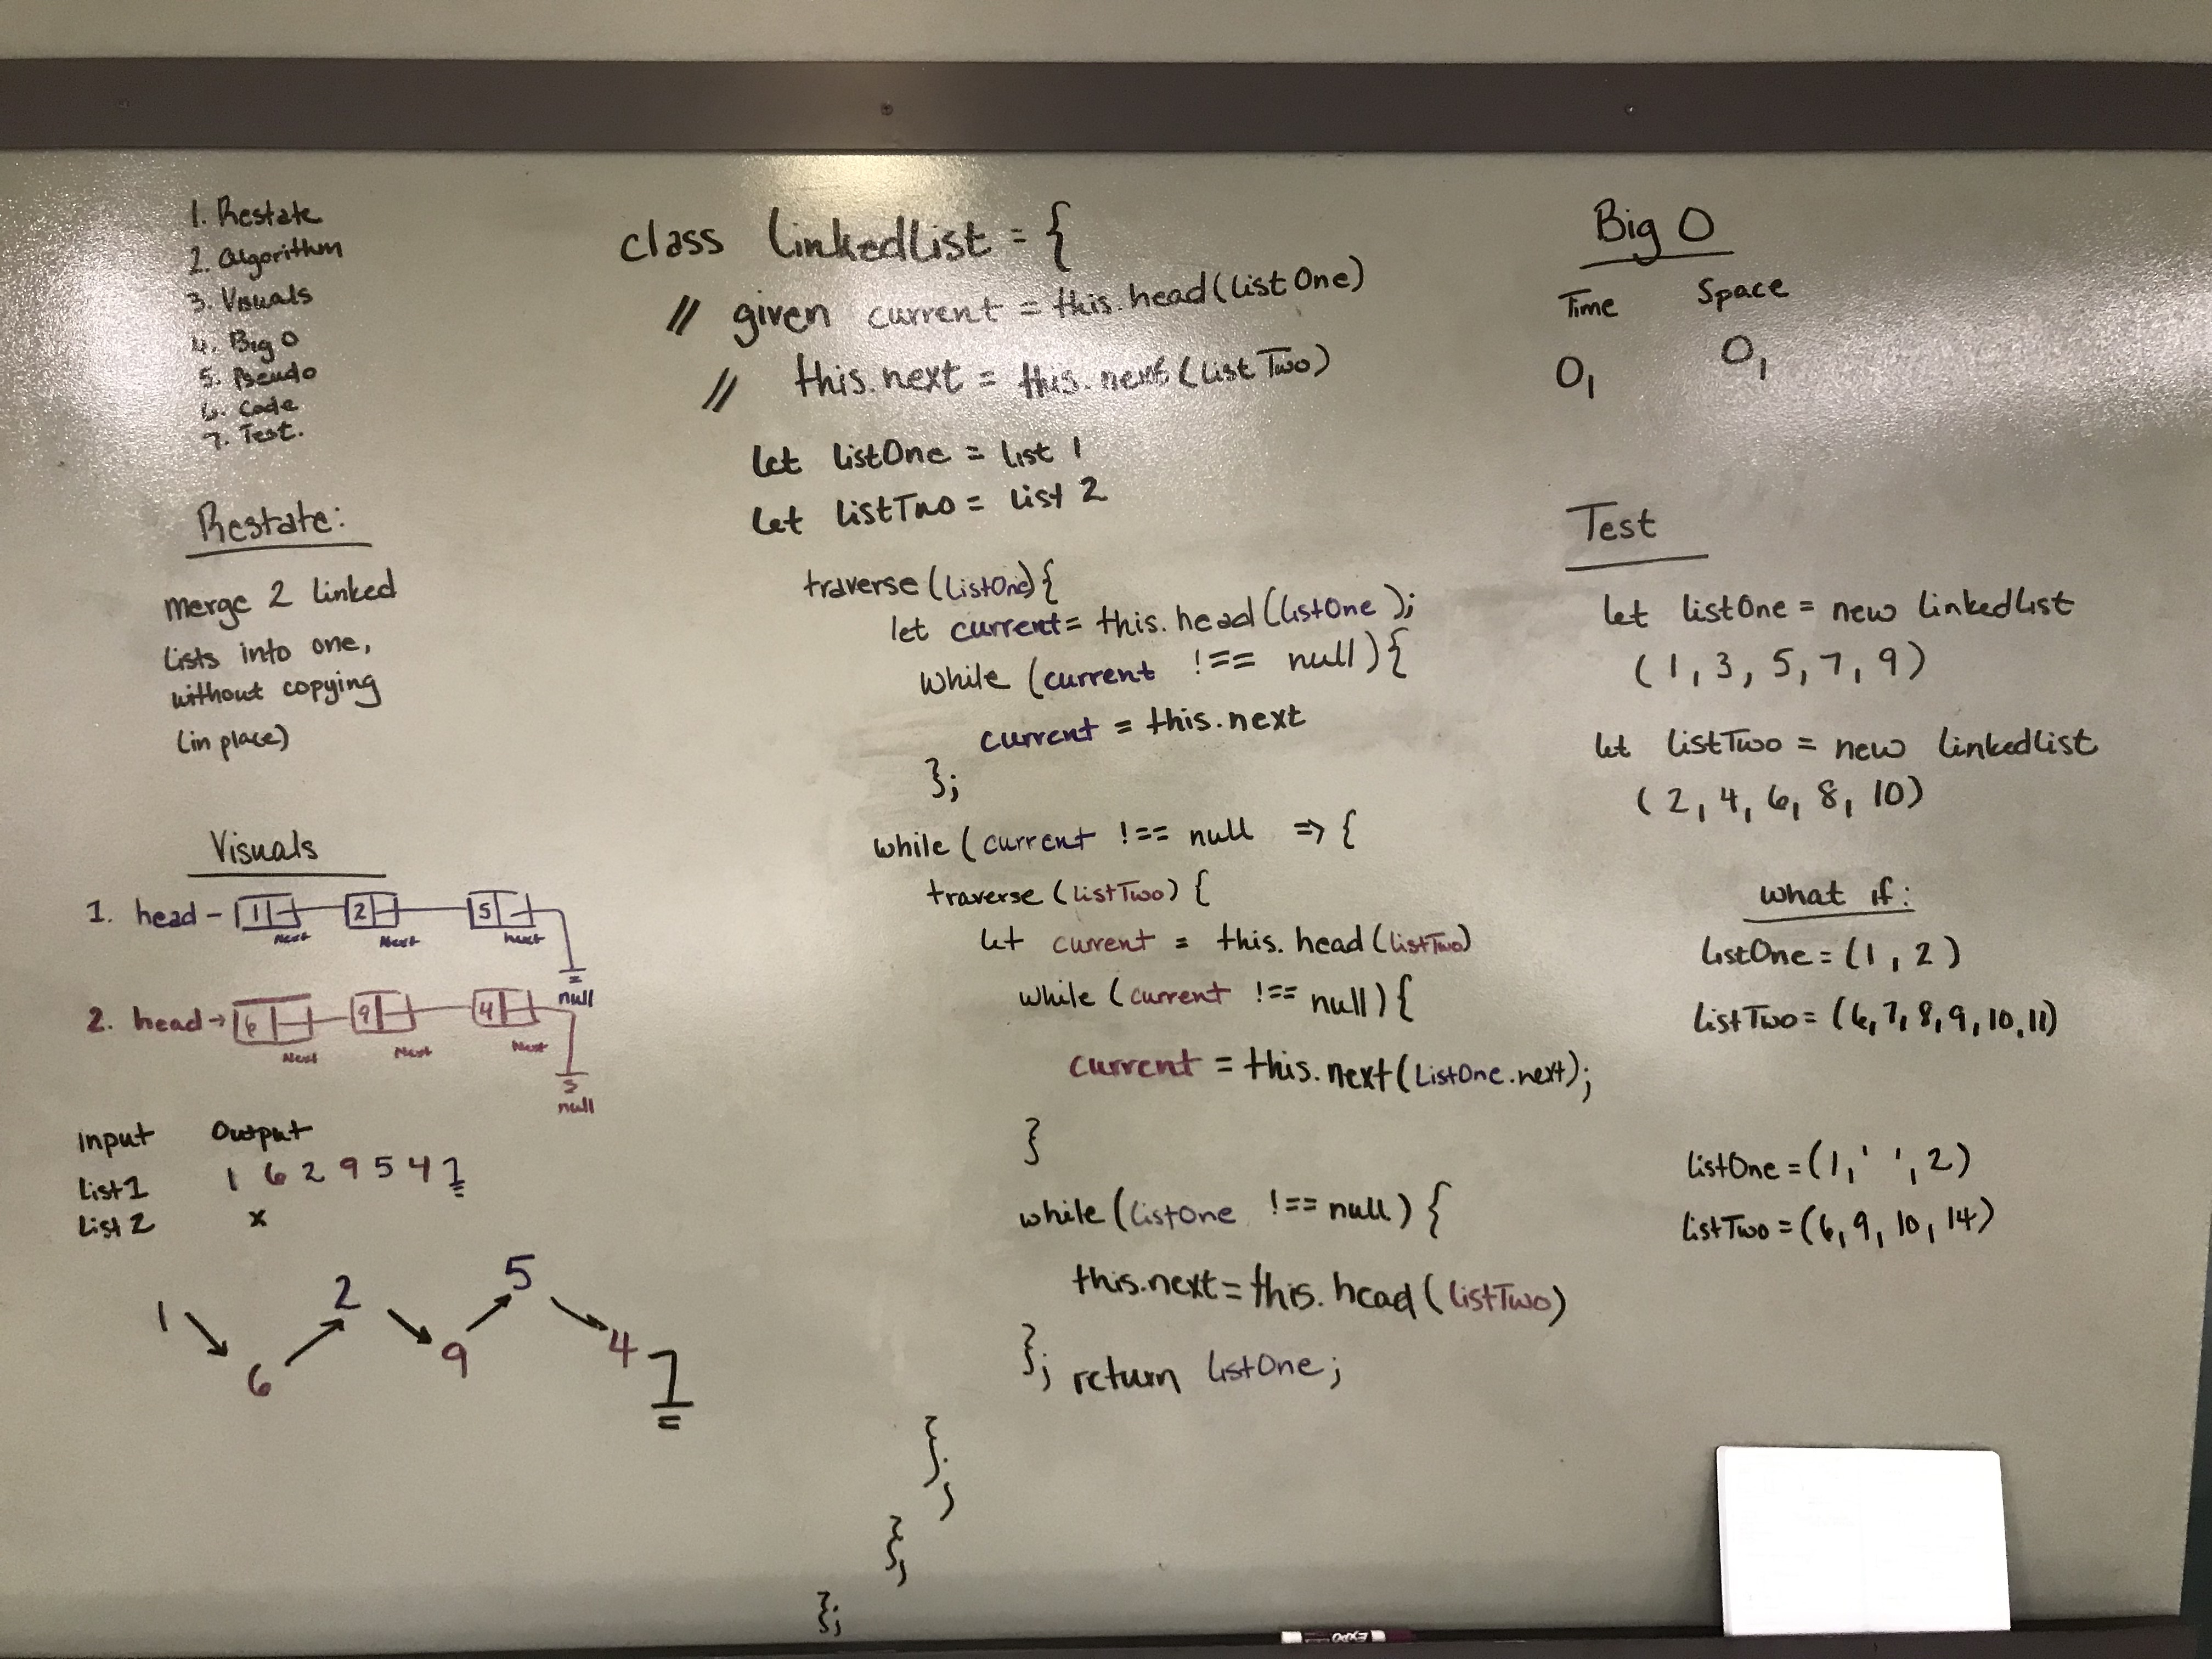 1. Restate
2. Algorithm
3. Visuals
4. Big O
5. Pseudo
6. Code
7. Test.
Restate:
Merge 2 linked
lists into one,
without copying
(in place)
Visuals
1. head - 1 2 5
Next Next next
null
2. head → 6 9 4
Next Next Next
null
Input Output
List 1 1 6 2 9 5 4
List 2 x
1 6 2 9 5 4
class linkedlist = {
// given current = this.head(listOne)
// this.next = this.next(listTwo)
let listOne = list 1
let listTwo = list 2
traverse(listOne){
let current = this.head(listOne);
while (current !== null){
current = this.next
};
while (current !== null => {
traverse (listTwo) {
let current = this.head(listTwo)
while (current !== null){
current = this.next(listOne.next);
}
while (listOne !== null) {
this.next = this.head(listTwo)
}; return listOne;
};
};
};
Big O
Time Space
O1 O1
Test
let listOne = new linkedlist
(1, 3, 5, 7, 9)
let listTwo = new linkedlist
(2, 4, 6, 8, 10)
what if:
listOne = (1, 2)
listTwo = (6, 7, 8, 9, 10, 11)
listOne = (1, ' ', 2)
listTwo = (6, 9, 10, 14)
EXPO